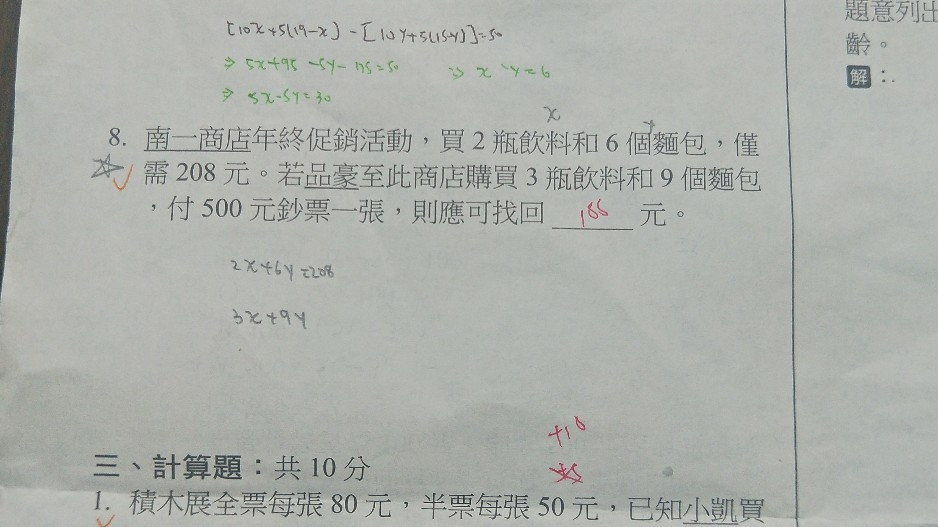 [10x+5(19-x)] - [10y+5(15-y)]=50
⇒ 5x+95 -5y- 75=50 ⇒ x-y=6
⇒ 5x-5y=30
x
8. 南一商店年終促銷活動，買 2 瓶飲料和 6 個麵包，僅
需 208 元。若品豪至此商店購買 3 瓶飲料和 9 個麵包
，付 500 元鈔票一張，則應可找回 元。
2x+6y=208
3x+9y
三、計算題：共 10 分
1. 積木展全票每張 80 元，半票每張 50 元，已知小凱買
題意列出
齡。
解：